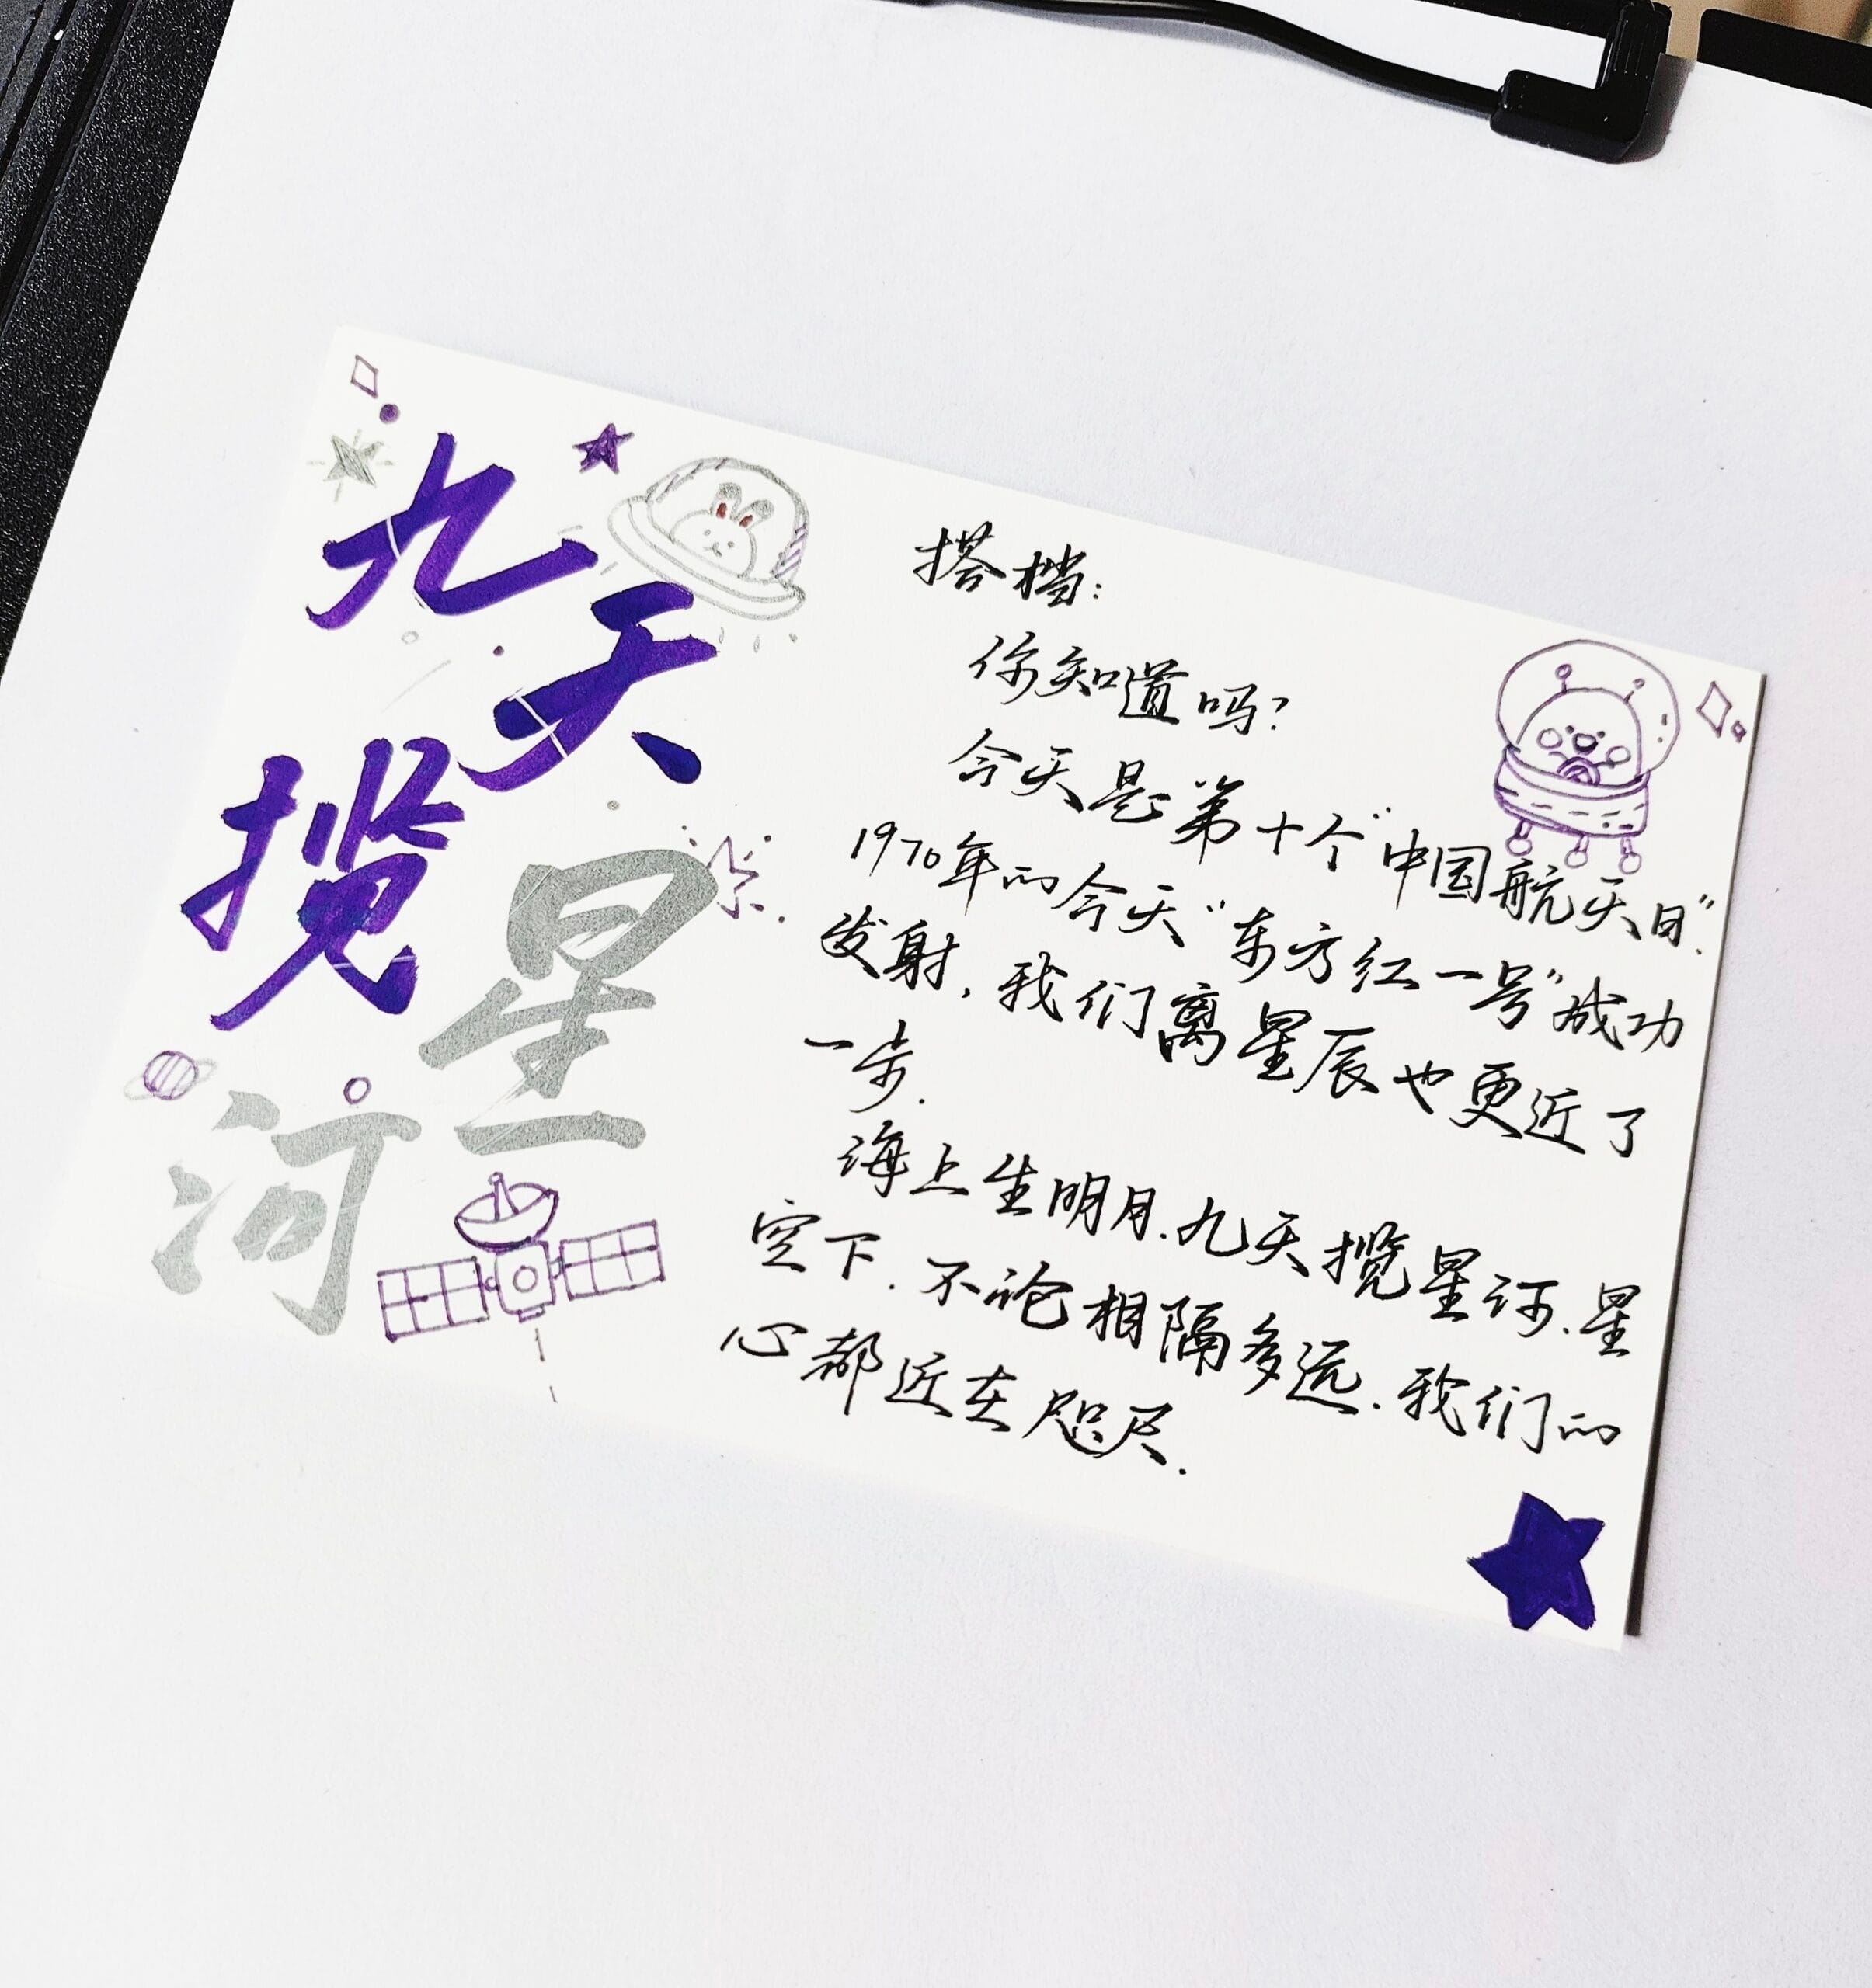 九天
揽星
河
搭档:
你知道吗?
今天是第十个“中国航天日”.
1970年的今天“东方红一号”成功
发射,我们离星辰也更近了
一步.
海上生明月.九天揽星河.星
空下.不论相隔多远.我们的
心都近在咫尺.